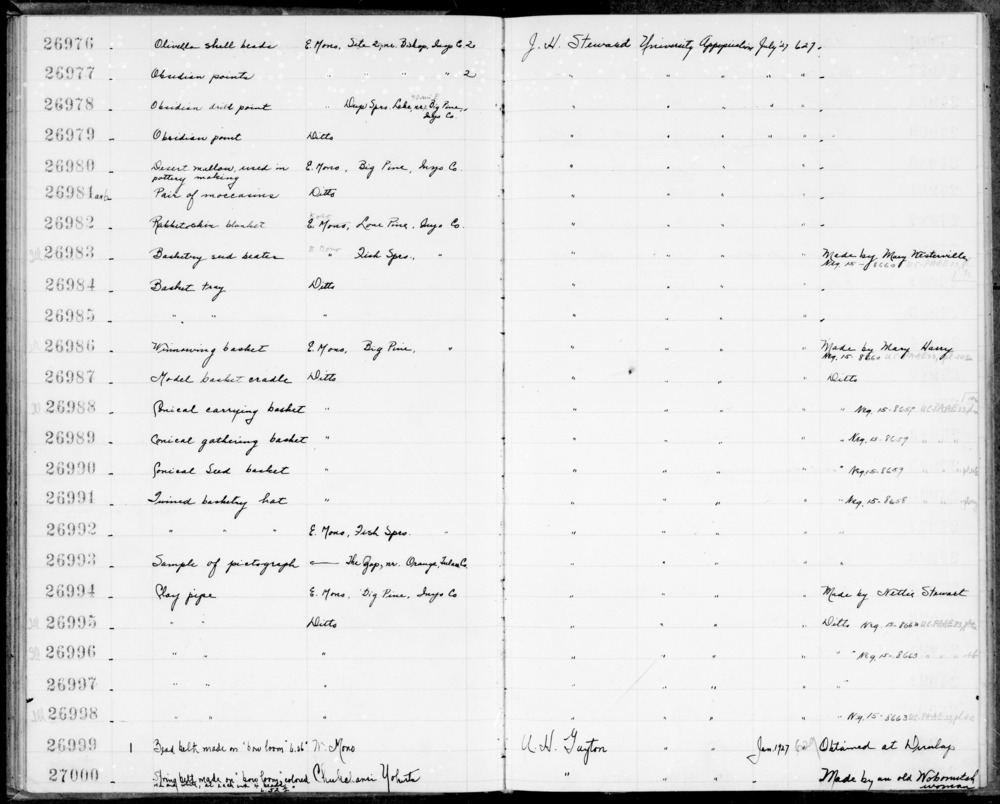 26976 - Olivella shell beads E. Mono, Site 2, nr. Bishop, Inyo Co. 2 J. H. Steward University Appropriation July '27 627 -
26977 - Obsidian points " " " " 2 " " " " -
26978 - Obsidian drill point " Deep Sprs. Lake, nr. Big Pine, Inyo Co. " " " " -
26979 - Obsidian point Ditto " " " " -
26980 - Desert mallow, used in E. Mono, Big Pine, Inyo Co. " " " " -
pottery making
26981 a+b - Pair of moccasins Ditto " " " " -
26982 - Rabbit-skin blanket E. Mono, Lone Pine, Inyo Co. " " " " -
26983 - Basketry seed beater " Fish Sprs., " " " " " Made by Mary Westerville
Neg. 15-8660
26984 - Basket tray Ditto " " " " -
26985 - " " " " " " " -
26986 - Winnowing basket E. Mono, Big Pine, " " " " " Made by Mary Harry
Neg. 15-8660
26987 - Model basket cradle Ditto " " " " Ditto
26988 - Conical carrying basket " " " " " " Neg. 15-8659
26989 - Conical gathering basket " " " " " " Neg. 15-8659
26990 - Conical Seed basket " " " " " " Neg. 15-8659
26991 - Twined basketry hat " " " " " " Neg. 15-8658
26992 - " " " E. Mono, Fish Sprs. " " " " " "
26993 - Sample of pictograph — The Gap, nr. Orange, Tulare Co. " " " " "
26994 - Clay pipe E. Mono, Big Pine, Inyo Co " " " " Made by Nettie Stewart
26995 - " " Ditto " " " " Ditto Neg. 15-8663
26996 - " " " " " " " " " Neg. 15-8663
26997 - " " " " " " " " "
26998 - " " " " " " " " Neg. 15-8663
26999 1 Bead belt made on "bow loom" W. Mono A. H. Gayton " " Jan 1927 629 Obtained at Dunlap
27000 - String belt, made on "bow loom", colored Chukchansi Yokuts " " " Made by an old Wobonuch
woman